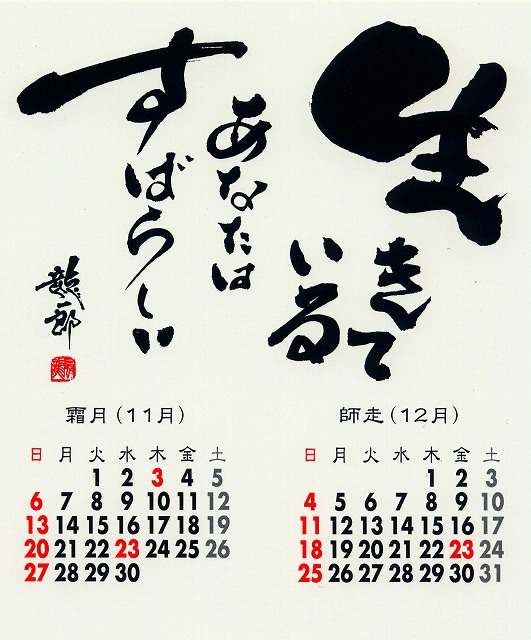 生
きて
いる
あなたは
すばらしい
龍一郎
霜月(11月)
日 月 火 水 木 金 土
1 2 3 4 5
6 7 8 9 10 11 12
13 14 15 16 17 18 19
20 21 22 23 24 25 26
27 28 29 30
師走(12月)
日 月 火 水 木 金 土
1 2 3
4 5 6 7 8 9 10
11 12 13 14 15 16 17
18 19 20 21 22 23 24
25 26 27 28 29 30 31